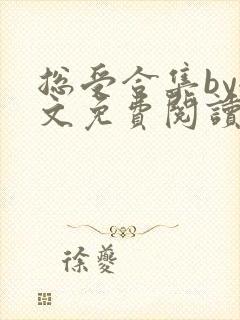 总受合集by
文免費閱讀
徐夔